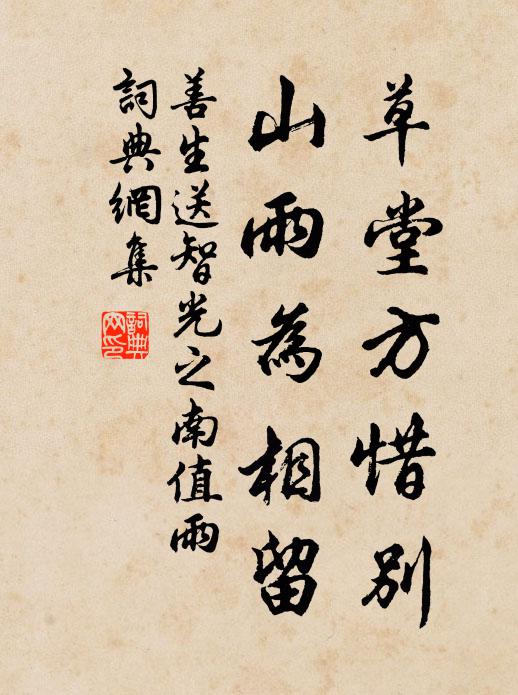 草堂方惜別
山雨為相留
善生送智光之南值雨
詞典網集
詞典網印